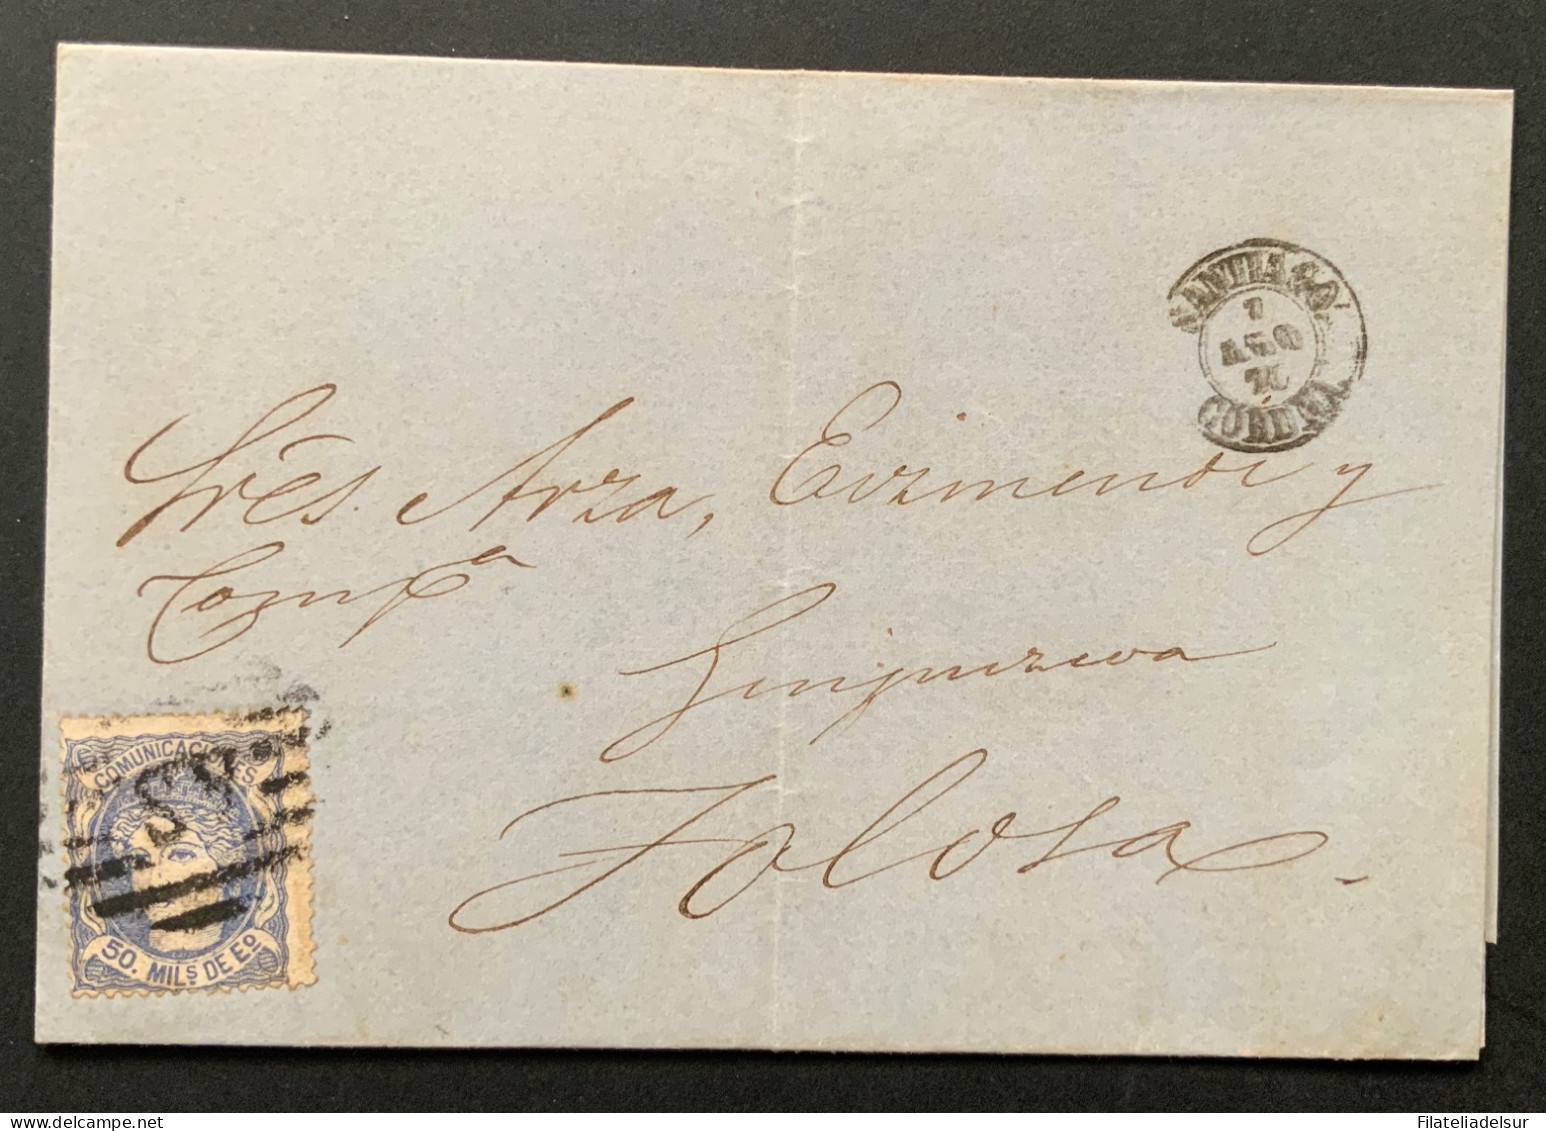 SANTIAGO
7
AGO
CORUÑA
Sres. Arza, Eizmendi y
Compª
Guipuzcoa
Tolosa.
COMUNICACIONES
50. MILS DE Eº
Filateliadelsur